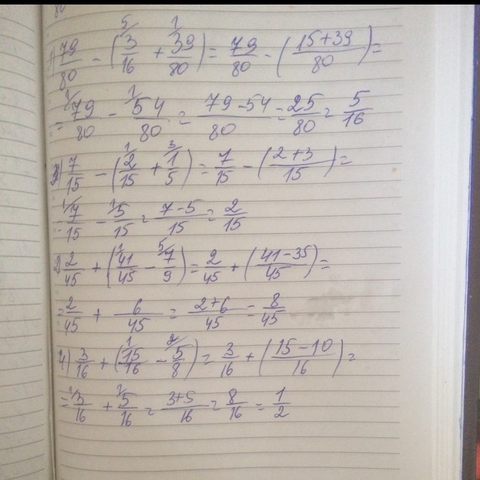 1) 79/80 - (3/16 + 39/80) = 79/80 - (15+39/80) =
= 79/80 - 54/80 = 79-54/80 = 25/80 = 5/16
3) 7/15 - (2/15 + 1/5) = 7/15 - (2+3/15) =
= 7/15 - 5/15 = 7-5/15 = 2/15
2 2/45 + (41/45 - 7/9) = 2/45 + (41-35/45) =
= 2/45 + 6/45 = 2+6/45 = 8/45
4) 3/16 + (15/16 - 5/8) = 3/16 + (15-10/16) =
= 3/16 + 5/16 = 3+5/16 = 8/16 = 1/2